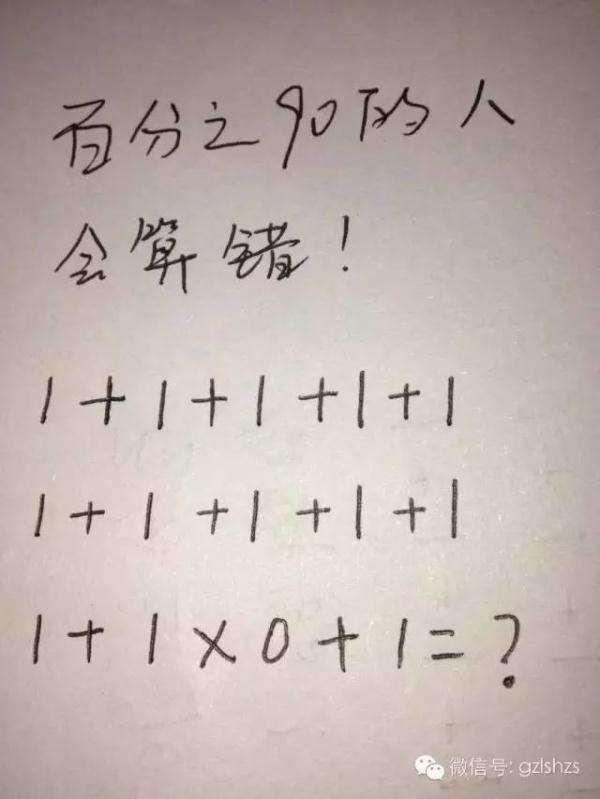 百分之90的人
会算错！
1+1+1+1+1
1+1+1+1+1
1+1×0+1=?
微信号: gzlshzs